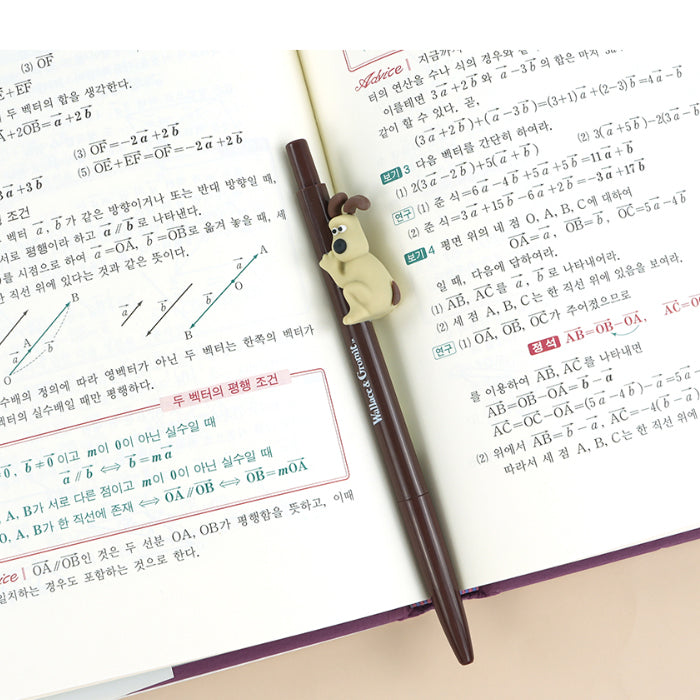 (3) OF
E+EF
두 벡터의 합을 생각한다.
A+2OB=a+2b
(3) OF=-2a+2b
(5) OE+EF=OF=-2a+2b
3a+3b
조건
벡터 a, b가 같은 방향이거나 또는 반대 방향일 때,
서로 평행이라 하고 a∥b로 나타낸다.
를 시점으로 하여 a=OA, b=OB로 옮겨 놓을 때, 세
한 직선 위에 있다는 것과 같은 뜻이다.
a b A B O
a b a b A O B
수배의 정의에 따라 영벡터가 아닌 두 벡터는 한쪽의 벡터가
벡터의 실수배일 때만 평행하다.
두 벡터의 평행 조건
≠0, b≠0이고 m이 0이 아닌 실수일 때
a∥b ⇔ b=ma
A, B가 서로 다른 점이고 m이 0이 아닌 실수일 때
, A, B가 한 직선에 존재 ⇔ OA∥OB ⇔ OB=mOA
OA∥OB인 것은 두 선분 OA, OB가 평행함을 뜻하고, 이때
일치하는 경우도 포함하는 것으로 한다.
Wallace & Gromit
Advice | 지금까지
터의 연산을 수나 식의 경우와
이를테면 3a+2b와 a-3b의 합은 마치
같이 할 수 있다. 곧,
(3a+2b)+(a-3b)=(3+1)a+(2-3)b=4a-b
보기 3 다음 벡터를 간단히 하여라.
(1) 2(3a-2b)+5(a+b)
(2) 3(a+5b)-2(3a-
연구 (1) 준 식=6a-4b+5a+5b=11a+b
(2) 준 식=3a+15b-6a+2b=-3a+17b
보기 4 평면 위의 네 점 O, A, B, C에 대하여
OA=a, OB=b, OC=5a-4b
일 때, 다음에 답하여라.
(1) AB, AC를 a, b로 나타내어라.
(2) 세 점 A, B, C는 한 직선 위에 있음을 보여라.
연구 (1) OA, OB, OC가 주어졌으므로
정석 AB=OB-OA, AC=O
를 이용하여 AB, AC를 나타내면
AB=OB-OA=b-a
AC=OC-OA=(5a-4b)-a=
(2) 위에서 AB=b-a, AC=-4(b-a)
따라서 세 점 A, B, C는 한 직선 위에